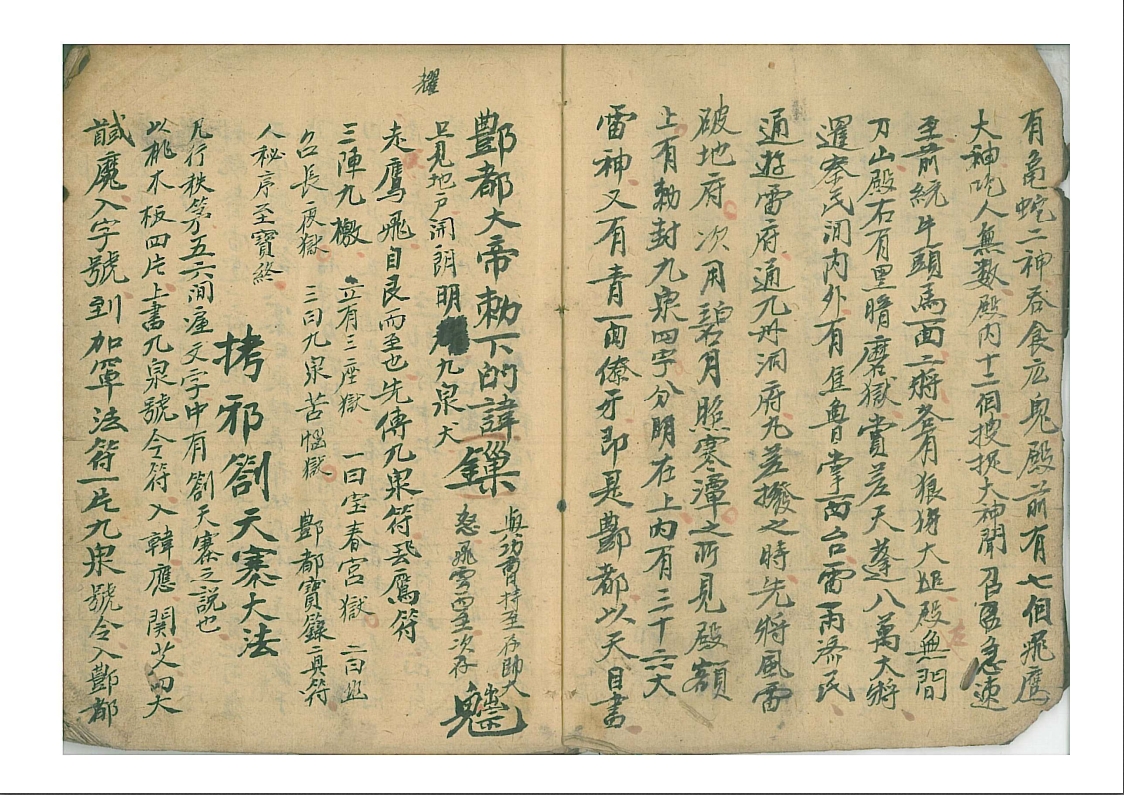 有亀蛇二神吞食広鬼殿前有七個飛鷹
大神吃人無数殿内十二個捉大神聞召急速
至前統牛頭馬面二將各有狼將大追殿無間
刀山殿右有黑暗磨獄賞差天蓬八萬大將
邏察民間内外有魚魯掌雨台雷雨済民
通遊雷府通九州洞府九差撥之時先將風雷
破地府次用碧月照寒潭之所見殿額
上有勅封九泉四字分明在上内有三十六大
雷神又有青面僚牙即是酆都以天自書
酆都大帝勅下的諱鏁與功曹持至存帥大怒飛雲至次存魒
耀
旦見地戸開朗明九泉犬
走鷹飛自艮而至也先傳九泉符發鷹符
三陣九檄立有三座獄一曰宝春宮獄二曰
召長夜獄三曰九泉苦惱獄酆都寶籙真符
人秘序至寶終
拷邪劄天寨大法
凡行秩第五六間產文字中有劄天寨之説也
以桃木板四片上書九泉號令符入韓應関文四大
馘魔入字號到加罩法符一片九泉號令入酆都